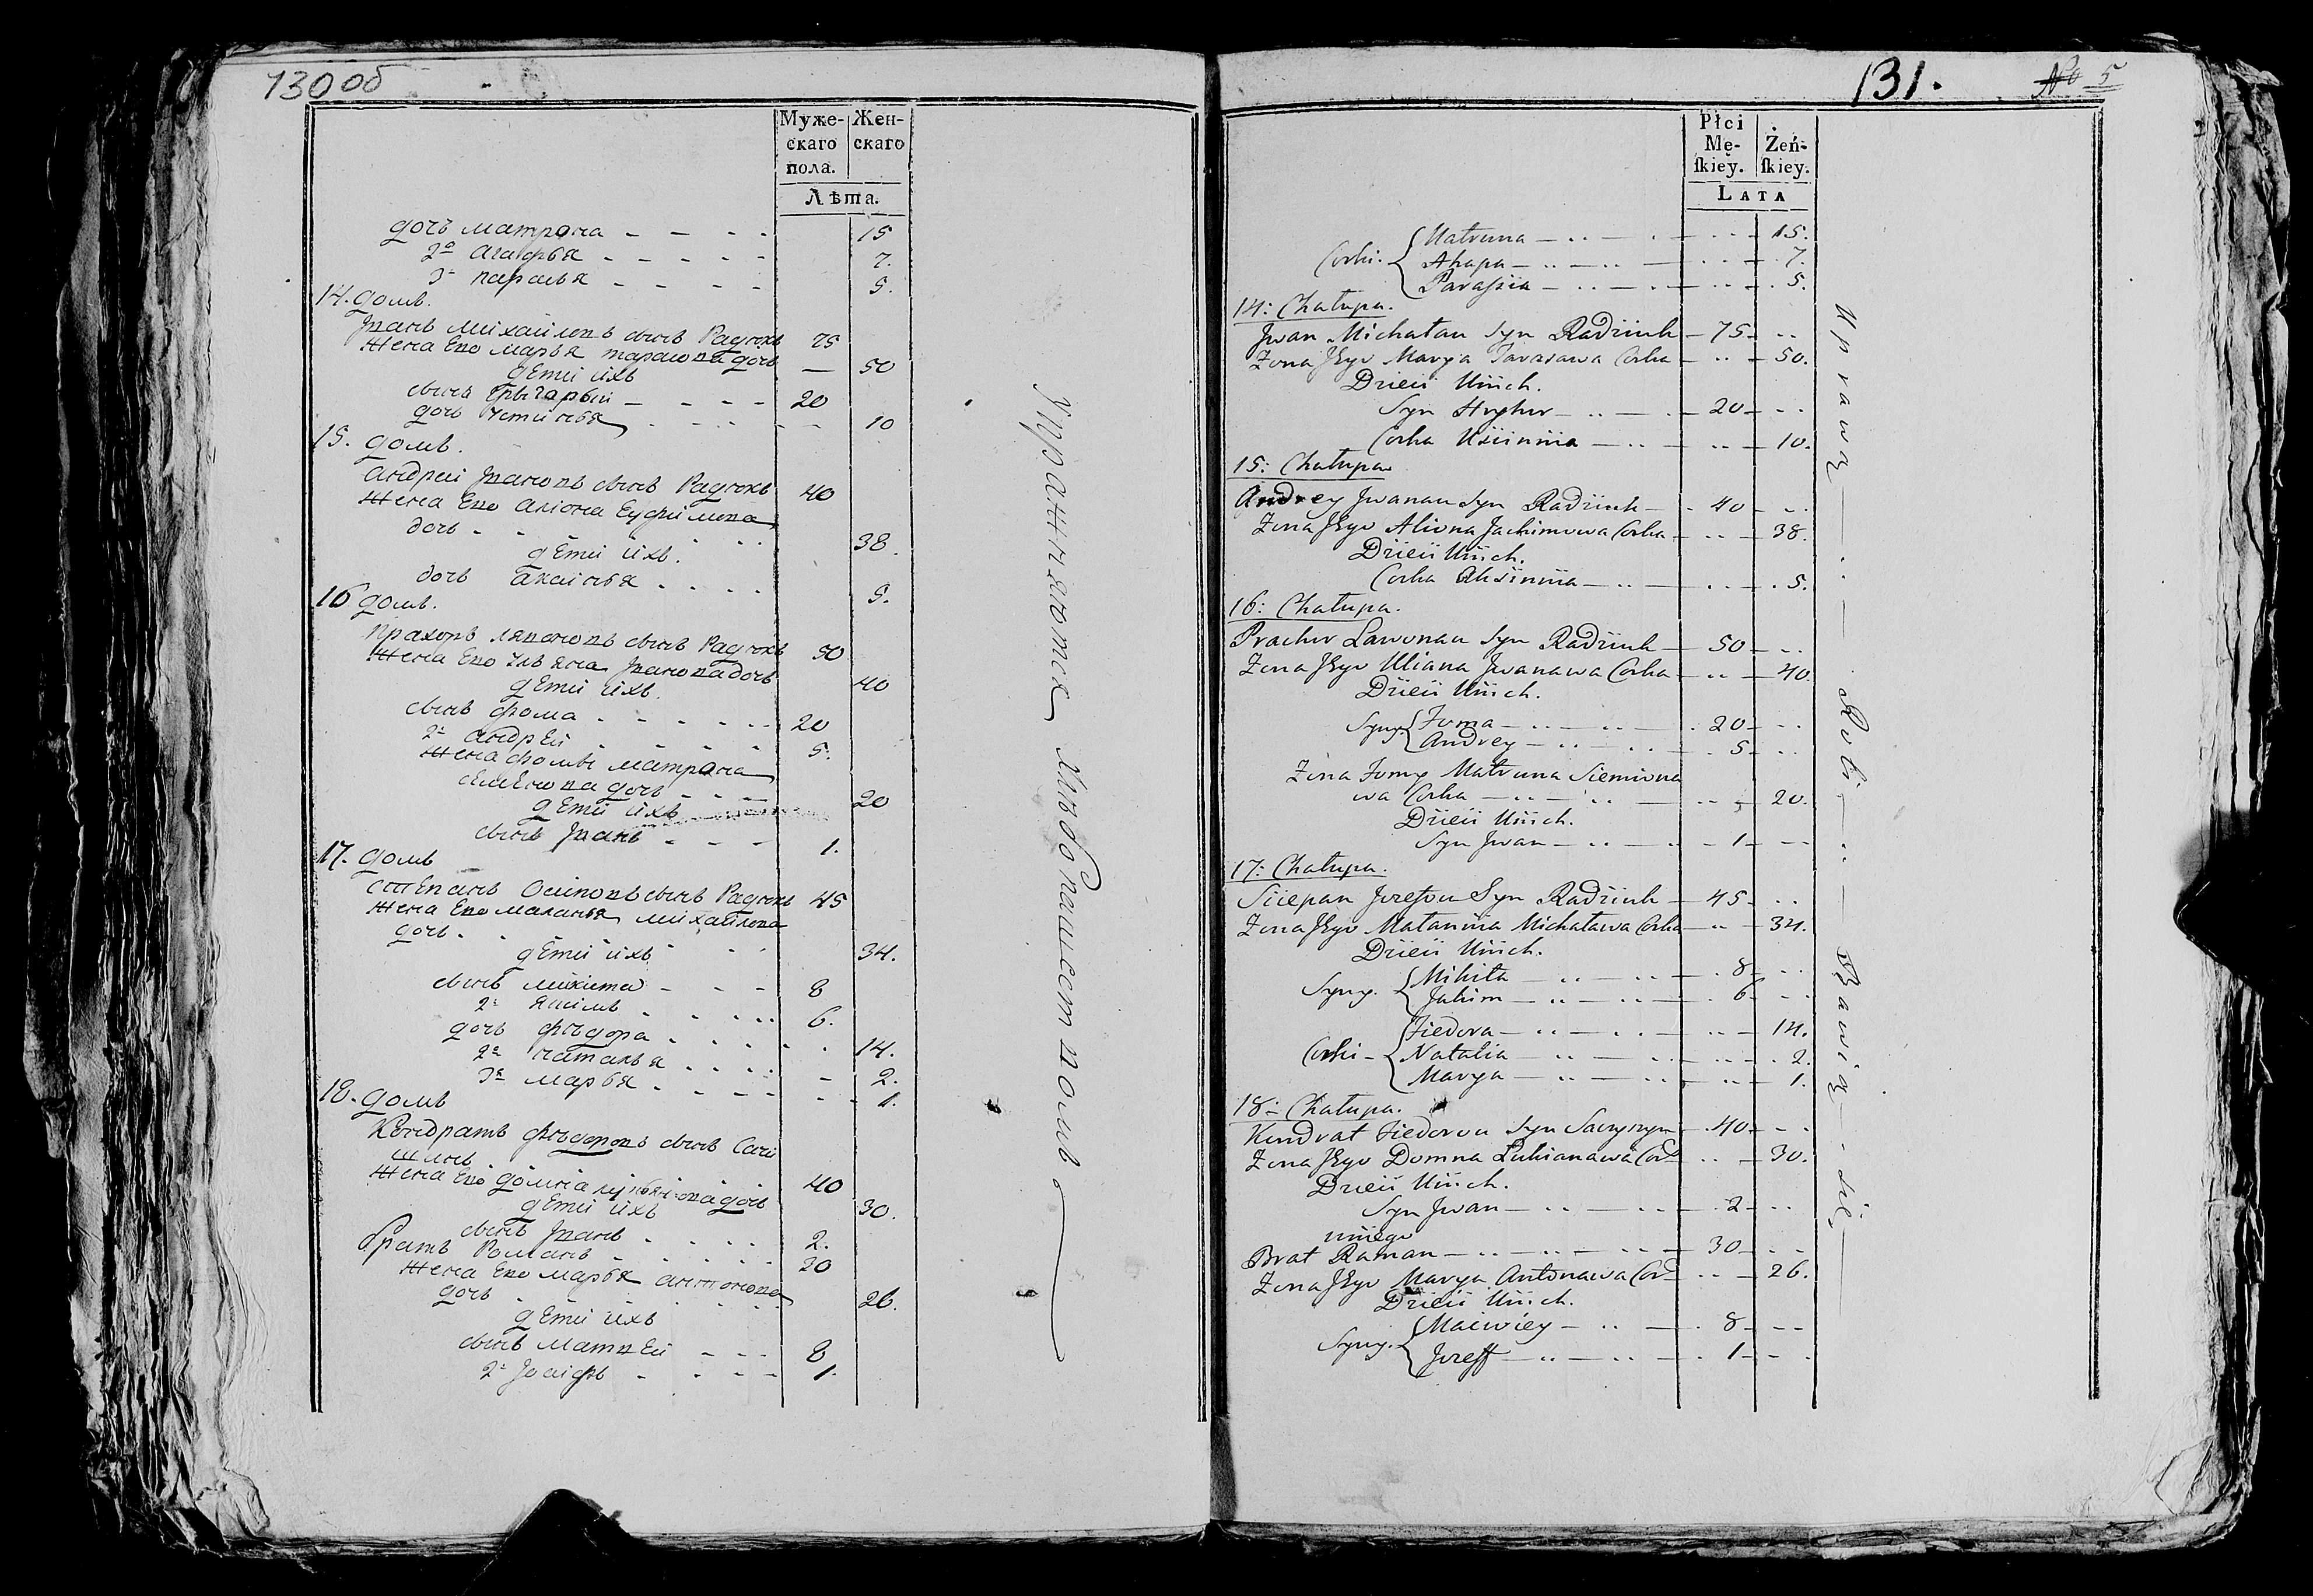 130 об
Муже-
скаго
пола.
Жен-
скаго
Лѣта.
дочь матрона - - - - 15
2а агафья - - - - - 7.
3- парасья - - - - 5.
14. домъ.
Іванъ михайловъ сынъ Радюкъ 75
жена Ево марья тарасова дочь — 50
дети ихъ
сынъ Грыгорый - - - - 20
дочь 10
15. домъ.
андрей Івановъ сынъ Радюкъ 40
жена Ево алiона Еуфимова
дочь - - - 38.
дети ихъ.
дочь аксинья - - - - 5.
16 домъ.
прахоръ лявоновъ сынъ Радюкъ 50
жена Ево ульяна Іванова дочь 40
дети ихъ.
сынъ фома - - - - - 20
2- андрей - - - - 5.
жена фомы матрона
семенова дочь - - - 20
дети ихъ
сынъ Іванъ - - - 1.
17. домъ
степанъ Осиповъ сынъ Радюкъ 45
жена Ево маланья михайлова
дочь - - - 34.
дети ихъ
сынъ микита - - - 8
2- якимъ - - - - 6.
дочь фѣодора - - - - - 14.
2а наталья - - - - - 2.
3я марья - - - - - 1.
18. домъ
Кондратъ фѣодоровъ сынъ
40
жена Ево домна лукьянова дочь 30.
дети ихъ
сынъ Іванъ - - - - 2.
братъ Романъ - - - - 20
жена Ево марья антонова
дочь - - - - 26.
дети ихъ
сынъ матвей - - - 8
2- Іосифъ - - - - 1.
Упражняются хлебопашествомъ
131. № 5
Płci
Mę-
ſkiey.
Żeń-
ſkiey.
LATA
Corki. { Matruna 15.
Ahapa 7.
Parassia 5.
14: Chałupa.
Jwan Michałau Syn Radziuk 75
Żona Jego Marya Tarasawa Corka 50.
Dzieci Unich.
Syn Hryhor 20
Corka Uscinnia 10.
15: Chałupa
Andrey Jwanau Syn Radziuk 40
Żona Jego Aliona Jachimowa Corka 38.
Dzieci Unich.
Corka Aksinnia 5.
16: Chałupa.
Prachor Lawonau Syn Radziuk 50
Żona Jego Uliana Jwanawa Corka 40.
Dzieci Unich.
Syny { Foma 20
Andrey 5
Żona Fomy Matruna Siemiona
wa Corka 20.
Dzieci Unich.
Syn Jwan 1
17: Chałupa.
Sciepan Jozefou Syn Radziuk 45
Żona Jego Małannia Michaława Corka 34.
Dzieci Unich.
Syny. { Mikita 8
Jakim 6
Corki { Fiedora 14.
Natalia 2.
Marya 1.
18: Chałupa.
Kondrat Fiedorou Syn 40
Żona Jego Domna Łukianawa Cor 30.
Dzieci Unich.
Syn Jwan 2
uniego
Brat Raman 30
Żona Jego Marya Antonawa Cor 26.
Dzieci Unich.
Syny. { Maciwiey 8
Jozeff 1
Uprawą Roli Bawią się